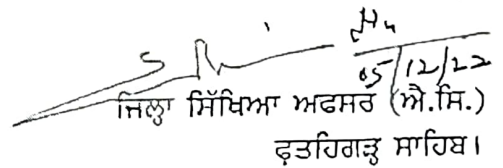 05/12/22
ਜਿਲ੍ਹਾ ਸਿੱਖਿਆ ਅਫਸਰ (ਐ.ਸਿ.)
ਫ਼ਤਹਿਗੜ੍ਹ ਸਾਹਿਬ।